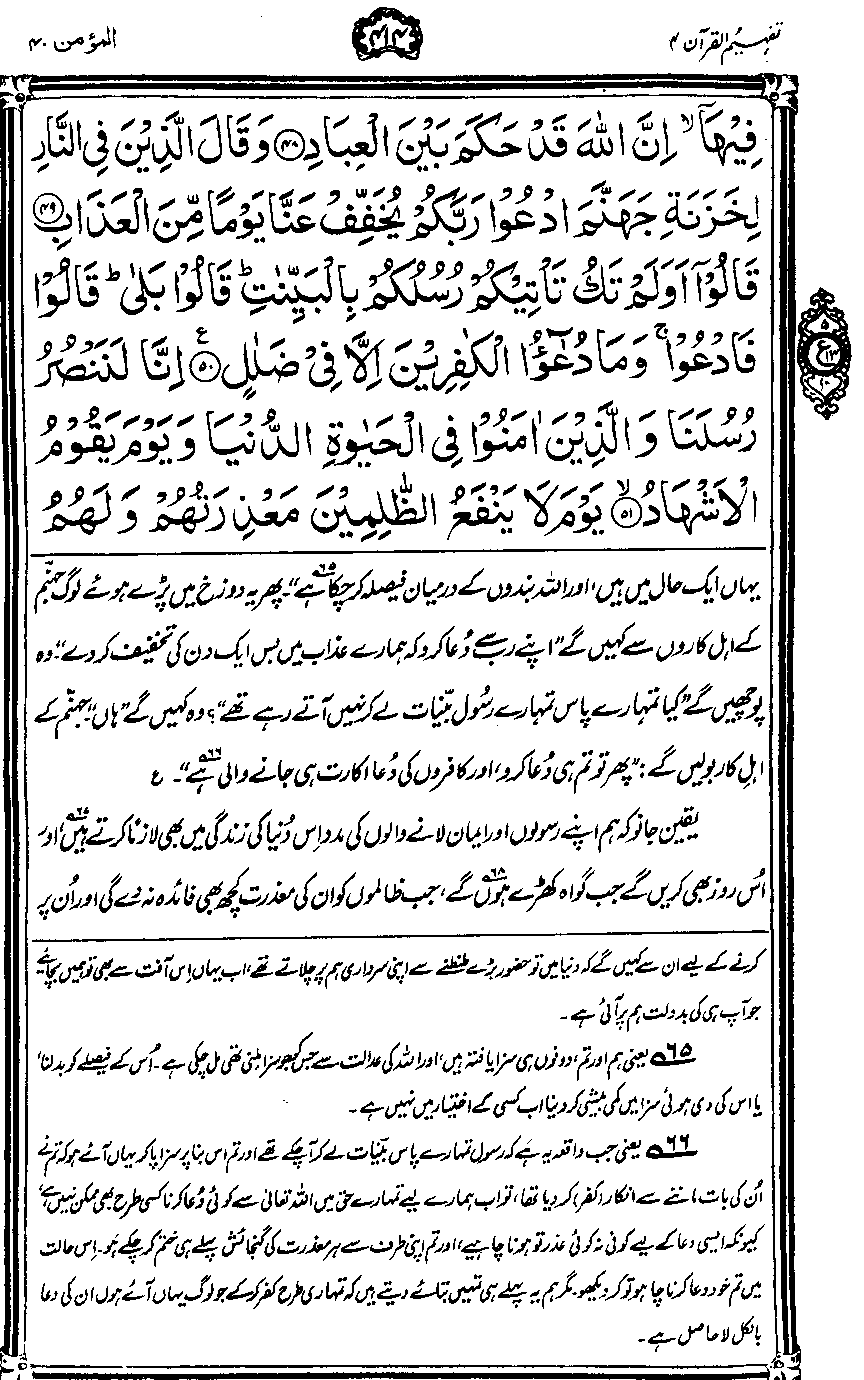 تفہیم القرآن ۴
۴۱۴
المؤمن ۴۰
فِيْهَاۤ ۙ اِنَّ اللّٰهَ قَدْ حَكَمَ بَيْنَ الْعِبَادِ ﴿۴۸﴾ وَقَالَ الَّذِيْنَ فِى النَّارِ
لِخَزَنَةِ جَهَنَّمَ ادْعُوْا رَبَّكُمْ يُخَفِّفْ عَنَّا يَوْمًا مِّنَ الْعَذَابِ ﴿۴۹﴾
قَالُوْۤا اَوَلَمْ تَكُ تَاْتِيْكُمْ رُسُلُكُمْ بِالْبَيِّنٰتِ ؕ قَالُوْا بَلٰى ؕ قَالُوْا
فَادْعُوْا ۚ وَمَا دُعٰٓؤُا الْكٰفِرِيْنَ اِلَّا فِىْ ضَلٰلٍ ﴿۵۰﴾ ع اِنَّا لَنَنْصُرُ
رُسُلَنَا وَالَّذِيْنَ اٰمَنُوْا فِى الْحَيٰوةِ الدُّنْيَا وَيَوْمَ يَقُوْمُ
الْاَشْهَادُ ﴿۵۱﴾ ۙ يَوْمَ لَا يَنْفَعُ الظّٰلِمِيْنَ مَعْذِرَتُهُمْ وَلَهُمُ
یہاں ایک حال میں ہیں، اور اللہ بندوں کے درمیان فیصلہ کر چکا ہے۶۵"۔ پھر یہ دوزخ میں پڑے ہوئے لوگ جہنّم
کے اہل کاروں سے کہیں گے "اپنے رب سے دُعا کرو کہ ہمارے عذاب میں بس ایک دن کی تخفیف کر دے"۔ وہ
پوچھیں گے "کیا تمہارے پاس تمہارے رسُول بیّنات لے کر نہیں آتے رہے تھے"؟ وہ کہیں گے "ہاں"۔ جہنّم کے
اہلِ کار بولیں گے: "پھر تو تم ہی دُعا کرو، اور کافروں کی دُعا اکارت ہی جانے والی ہے۶۶"۔ ع
یقین جانو کہ ہم اپنے رسولوں اور ایمان لانے والوں کی مدد اِس دُنیا کی زندگی میں بھی لازمًا کرتے ہیں۶۷، اور
اُس روز بھی کریں گے جب گواہ کھڑے ہوں گے۶۸، جب ظالموں کو ان کی معذرت کچھ بھی فائدہ نہ دے گی اور اُن پر
کرنے کے لیے ان سے کہیں گے کہ دنیا میں تو حضور بڑے طنطنے سے اپنی سرداری ہم پر چلاتے تھے، اب یہاں اِس آفت سے بھی تو ہمیں بچائیے
جو آپ ہی کی بدولت ہم پر آئی ہے۔
۶۵ یعنی ہم اور تم، دونوں ہی سزا یافتہ ہیں، اور اللہ کی عدالت سے جس کو جو سزا ملنی تھی مل چکی ہے۔ اُس کے فیصلے کو بدلنا،
یا اس کی دی ہوئی سزا میں کمی بیشی کر دینا اب کسی کے اختیار میں نہیں ہے۔
۶۶ یعنی جب واقعہ یہ ہے کہ رسول تمہارے پاس بیّنات لے کر آ چکے تھے اور تم اس بنا پر سزا پا کر یہاں آئے ہو کہ تم نے
اُن کی بات ماننے سے انکار (کفر) کر دیا تھا، تو اب ہمارے لیے تمہارے حق میں اللہ تعالیٰ سے کوئی دُعا کرنا کسی طرح بھی ممکن نہیں ہے،
کیونکہ ایسی دعا کے لیے کوئی نہ کوئی عذر تو ہونا چاہیے، اور تم اپنی طرف سے ہر معذرت کی گنجائش پہلے ہی ختم کر چکے ہو۔ اِس حالت
میں تم خود دعا کرنا چاہو تو کر دیکھو۔ مگر ہم یہ پہلے ہی تمہیں بتائے دیتے ہیں کہ تمہاری طرح کفر کر کے جو لوگ یہاں آئے ہوں ان کی دعا
بالکل لا حاصل ہے۔